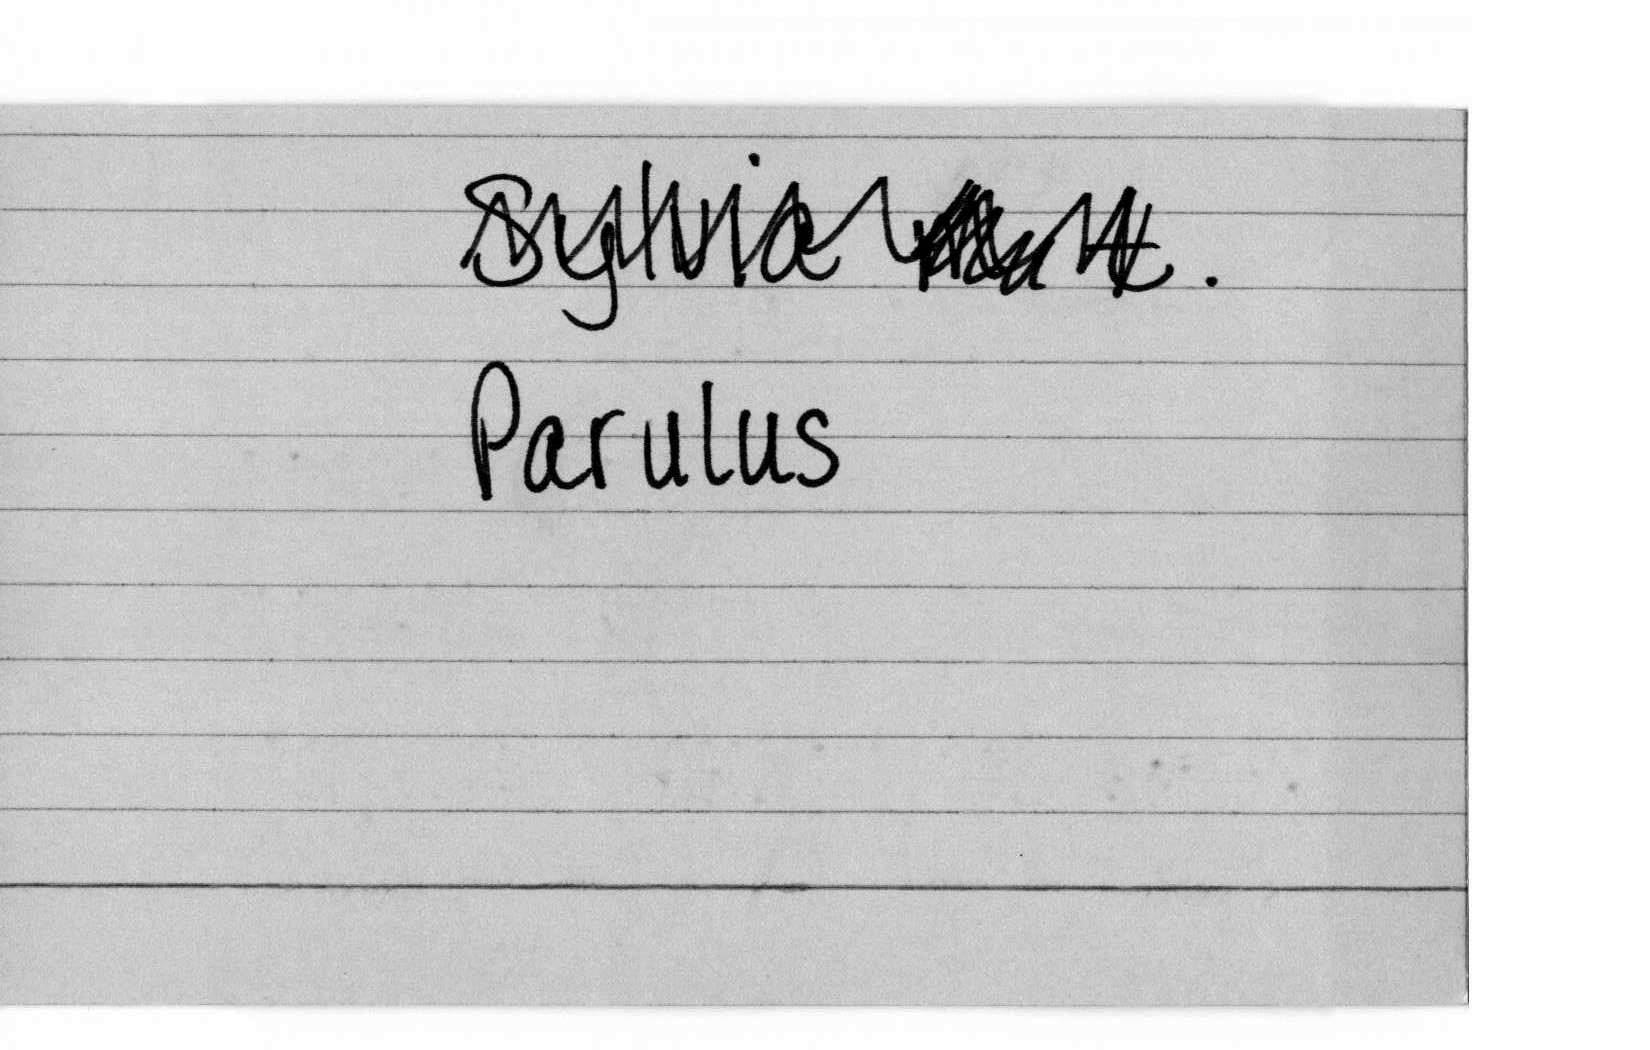 Sylvia
Parulus